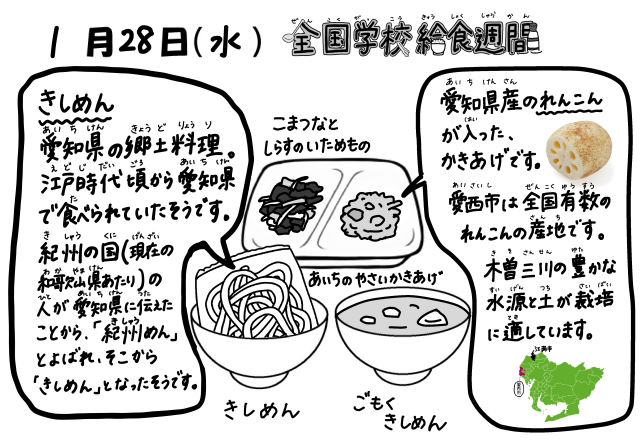 1月28日(水) 全国学校給食週間
きしめん
愛知県の郷土料理。
江戸時代頃から愛知県
で食べられていたそうです。
紀州の国(現在の
和歌山県あたり)の
人が愛知県に伝えた
ことから、「紀州めん」
とよばれ、そこから
「きしめん」となったそうです。
こまつなと
しらすのいためもの
あいちのやさいかきあげ
きしめん
ごもく
きしめん
愛知県産のれんこん
が入った、
かきあげです。
愛西市は全国有数の
れんこんの産地です。
木曽三川の豊かな
水源と土が栽培
に適しています。